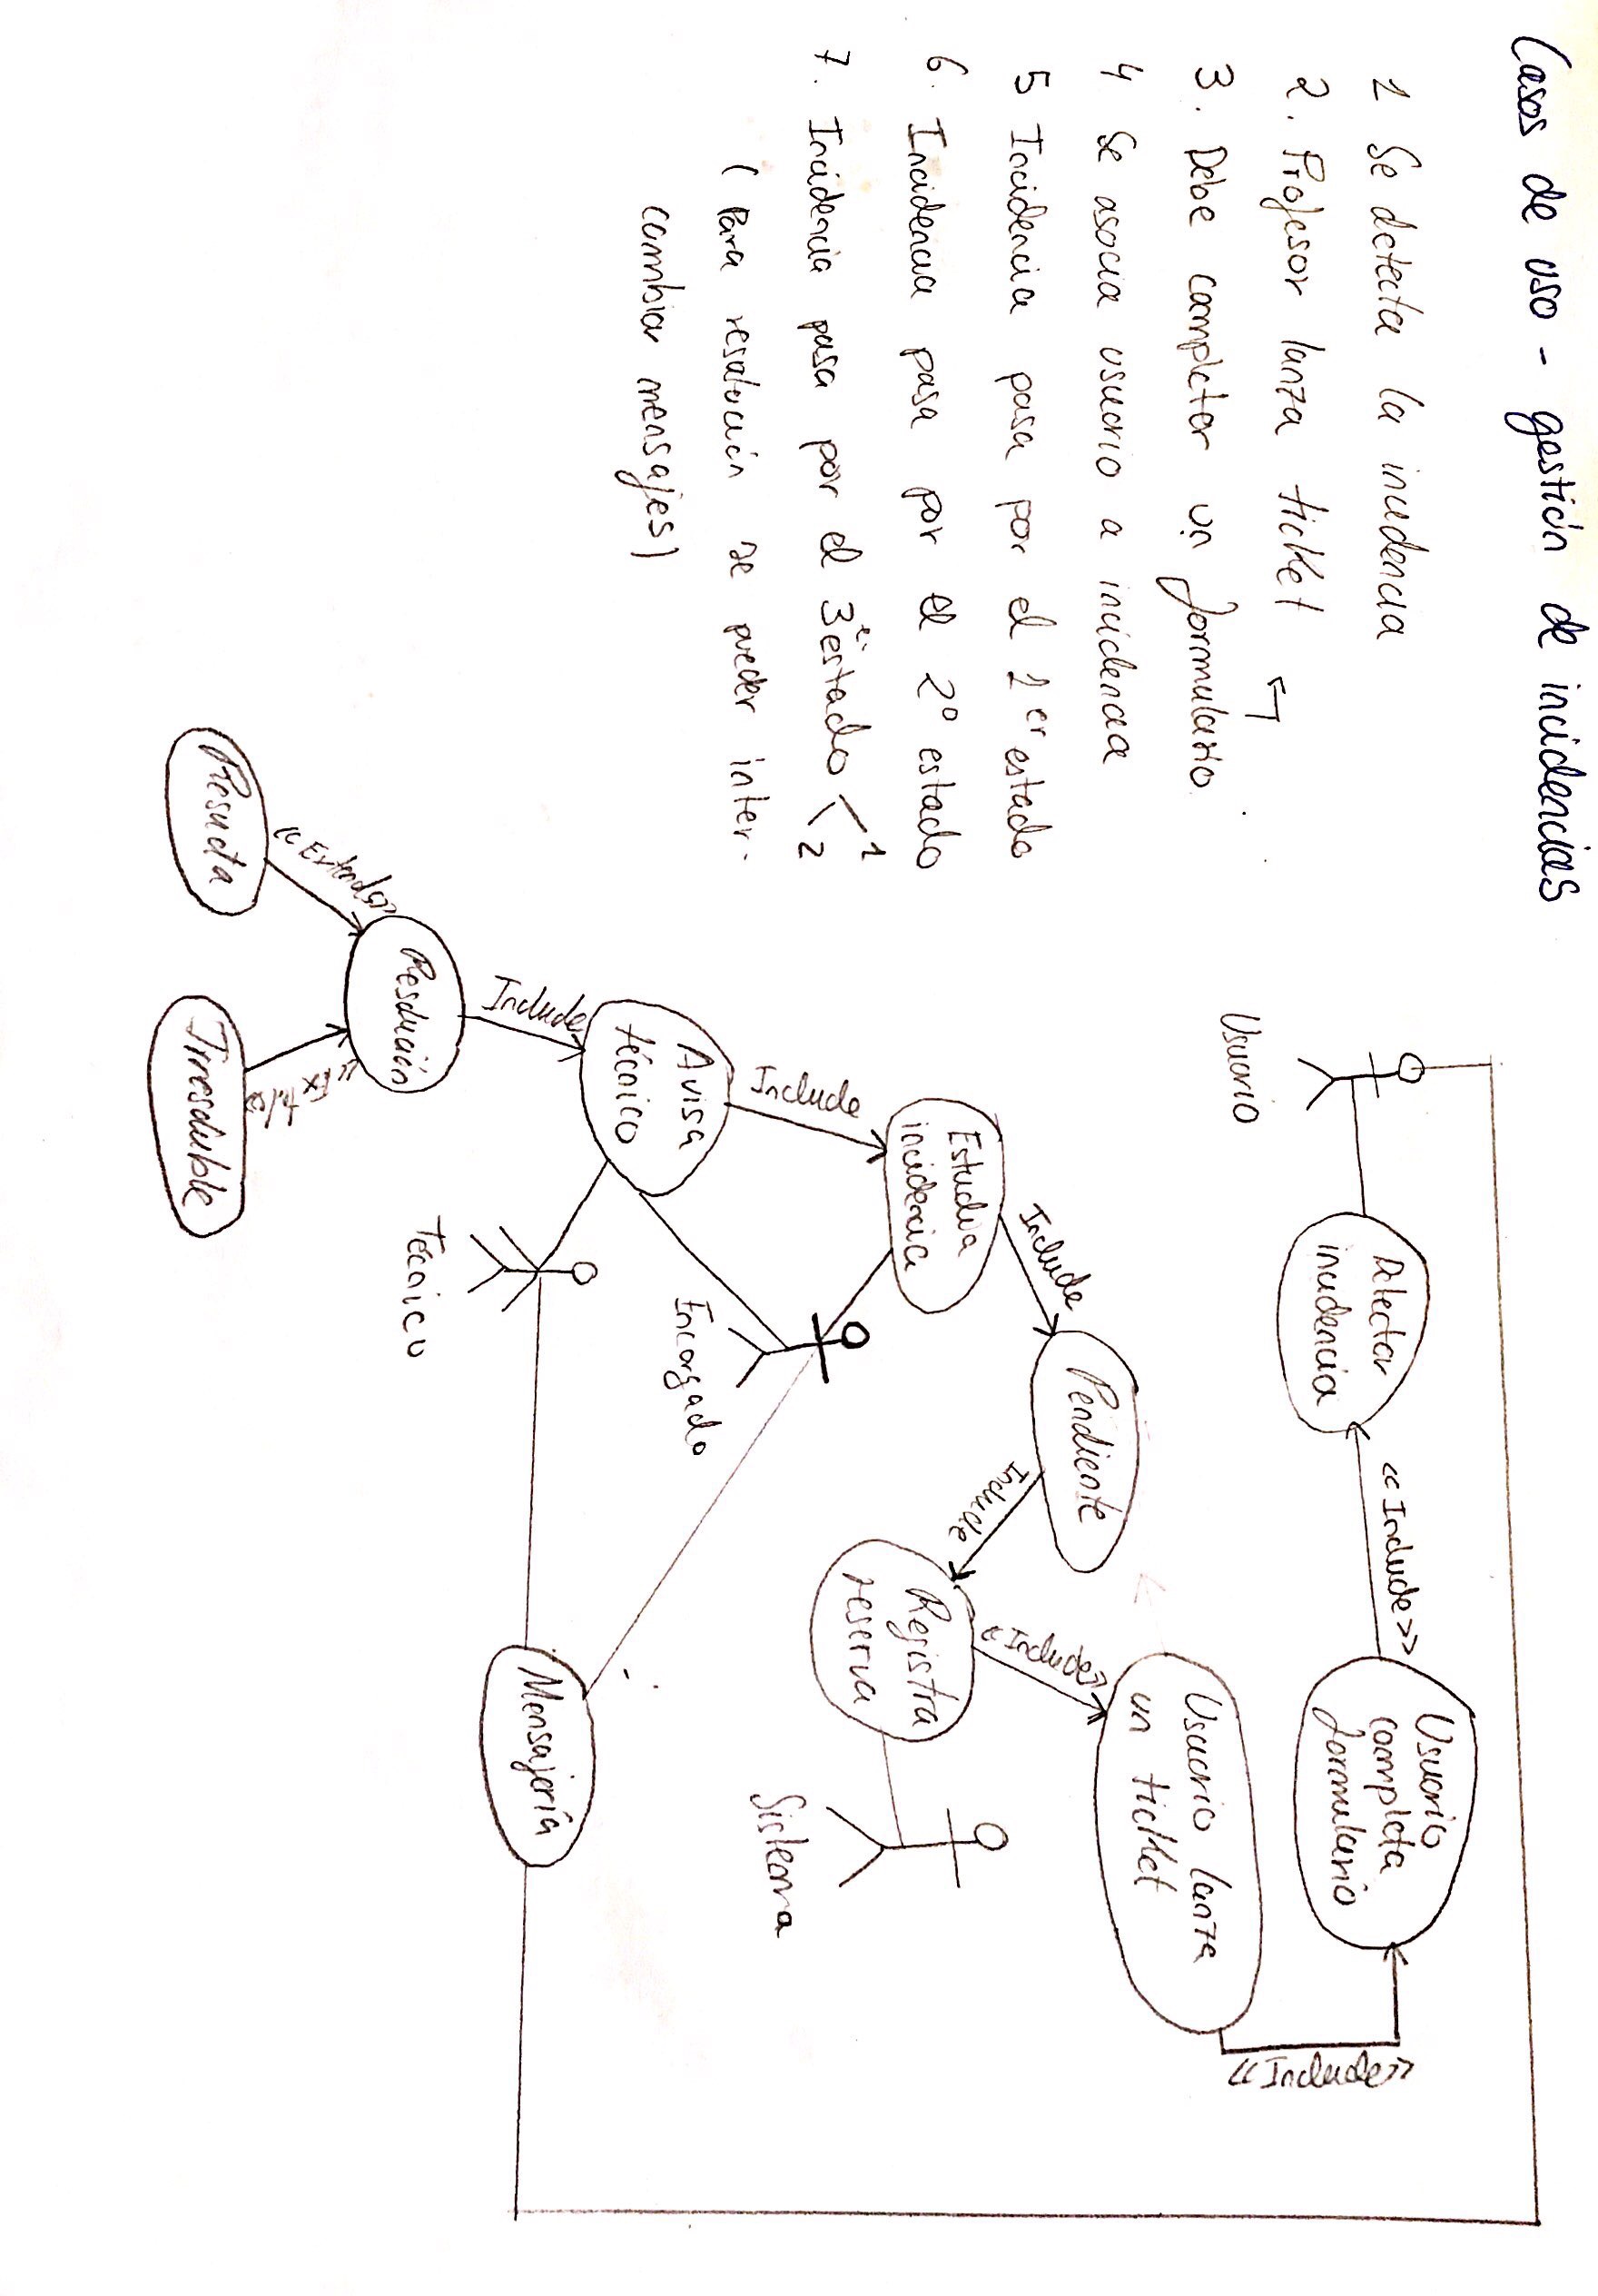 Casos de uso - gestión de incidencias
1 Se detecta la incidencia
2. Profesor lanza ticket
3. Debe completar un formulario
4 Se asocia usuario a incidencia
5 Incidencia pasa por el 1er estado
6. Incidencia pasa por el 2º estado
7. Incidencia pasa por el 3er estado < 1
2
(Para resolución se pueden inter-
cambiar mensajes)
Usuario
Detectar
incidencia
<<Include>>
Usuario
completa
formulario
<<Include>>
Usuario lanza
un ticket
<<Include>>
Registra
reserva
Sistema
Include
Pendiente
Include
Estudia
incidencia
Encargado
Include
Avisa
técnico
Técnico
Include
Resolución
<<Extends>>
Resuelta
Irresoluble
Mensajería